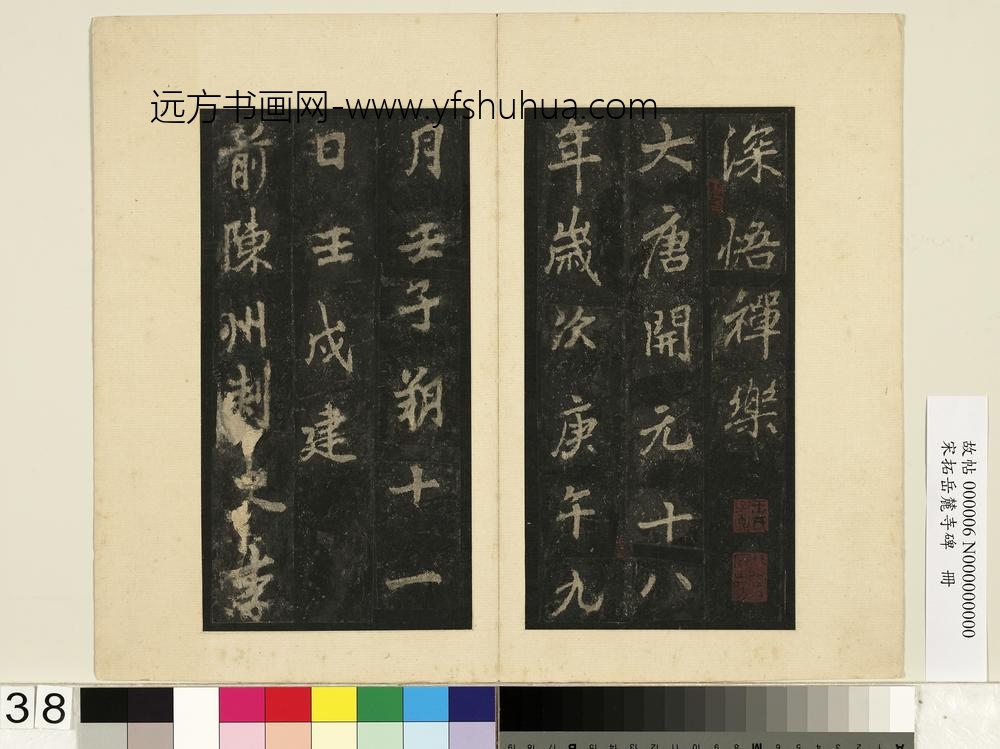 远方书画网-www.yfshuhua.com
深悟禪樂
大唐開元十八
年歲次庚午九
月壬子朔十一
日壬戌建
前陳州刺史李
故帖 000006 N000000000
宋拓岳麓寺碑 冊
38